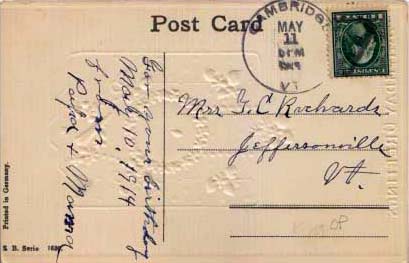 Post Card
CAMBRIDGE
MAY
11
VT.
For your birthday
May 10, 1914
From
Papa & Mama
Mrs. G. C. Richards
Jeffersonville
Vt.
Printed in Germany.
S. B. Serie